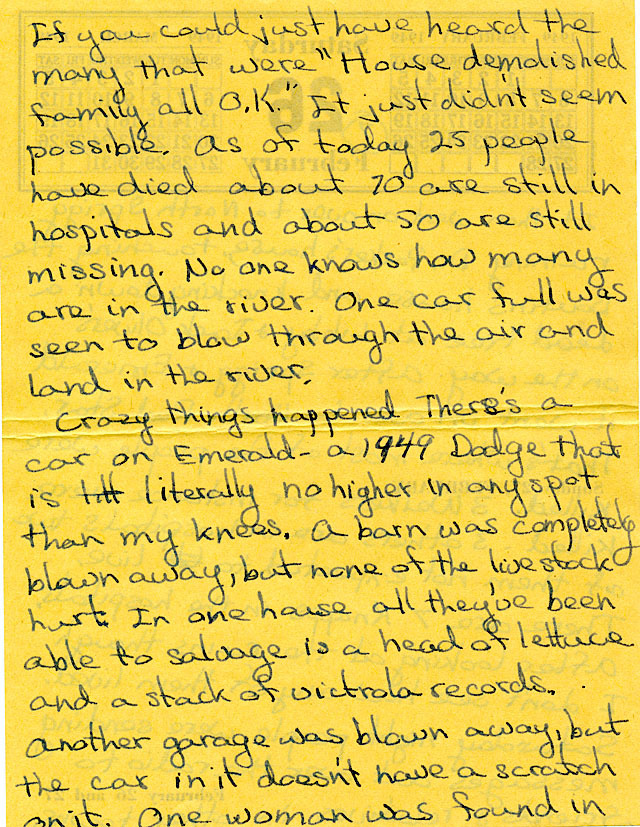 If you could just have heard the
many that were "House demolished
family all O.K." It just didn't seem
possible. As of today 25 people
have died about 70 are still in
hospitals and about 50 are still
missing. No one knows how many
are in the river. One car full was
seen to blow through the air and
land in the river.
Crazy things happened There's a
car on Emerald - a 1949 Dodge that
is literally no higher in any spot
than my knees. A barn was completely
blown away, but none of the livestock
hurt. In one house all they've been
able to salvage is a head of lettuce
and a stack of victrola records.
Another garage was blown away, but
the car in it doesn't have a scratch
on it. One woman was found in